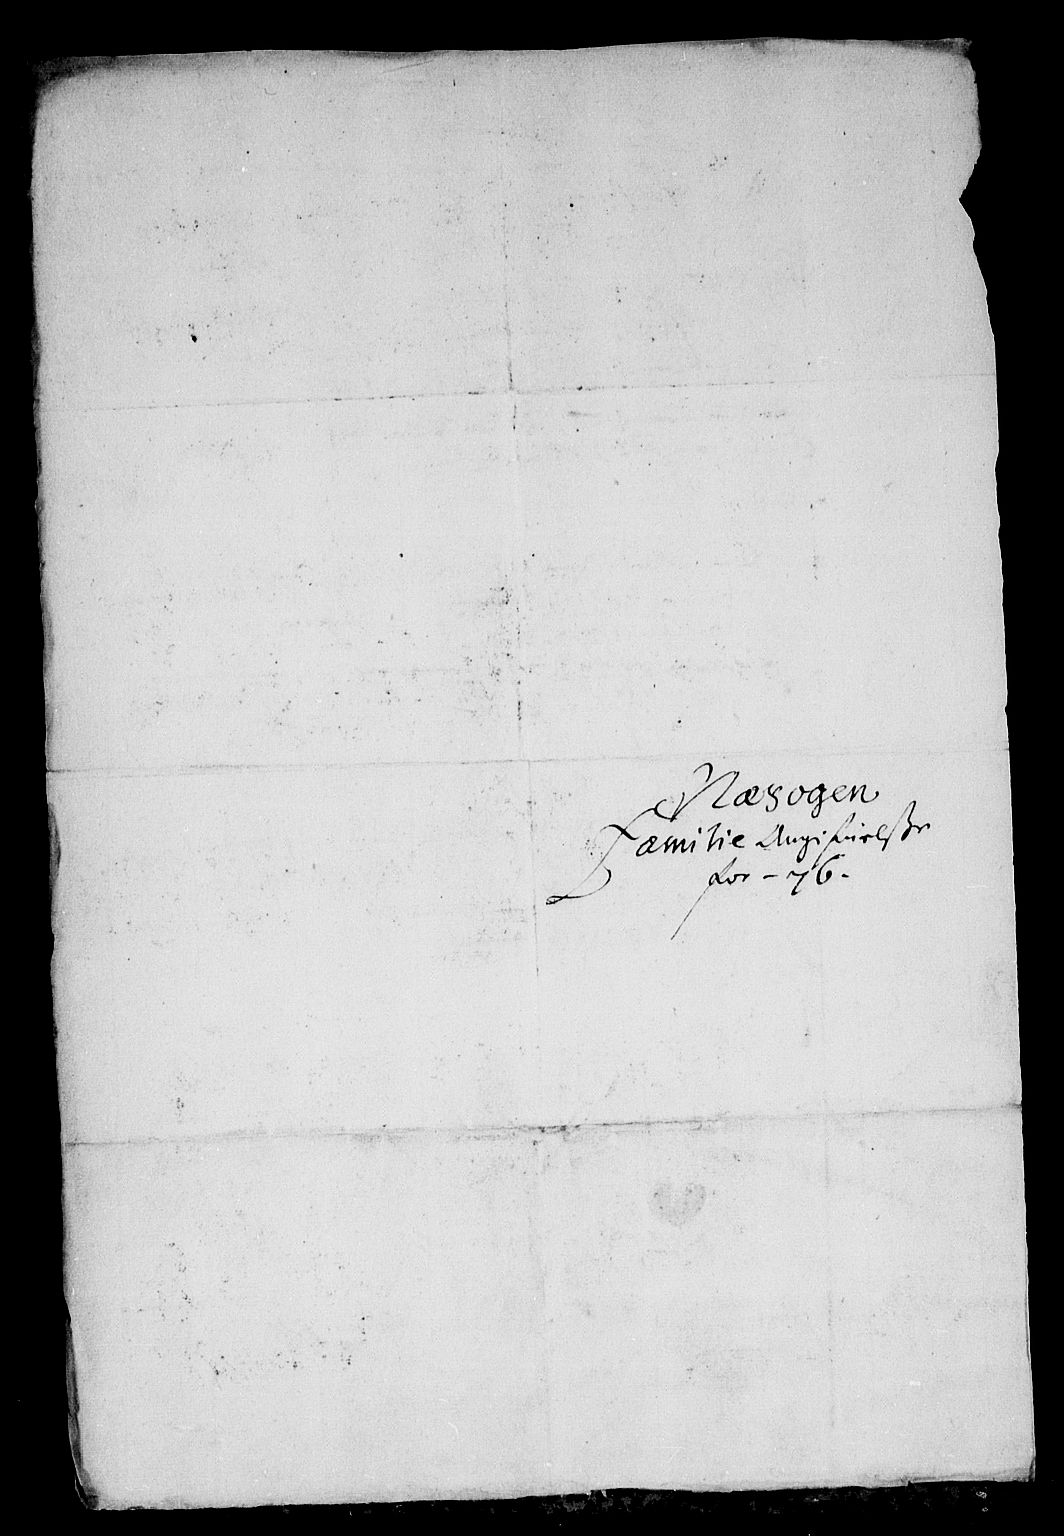 Næsogen
Familie Angifuelsße
for - 76 -